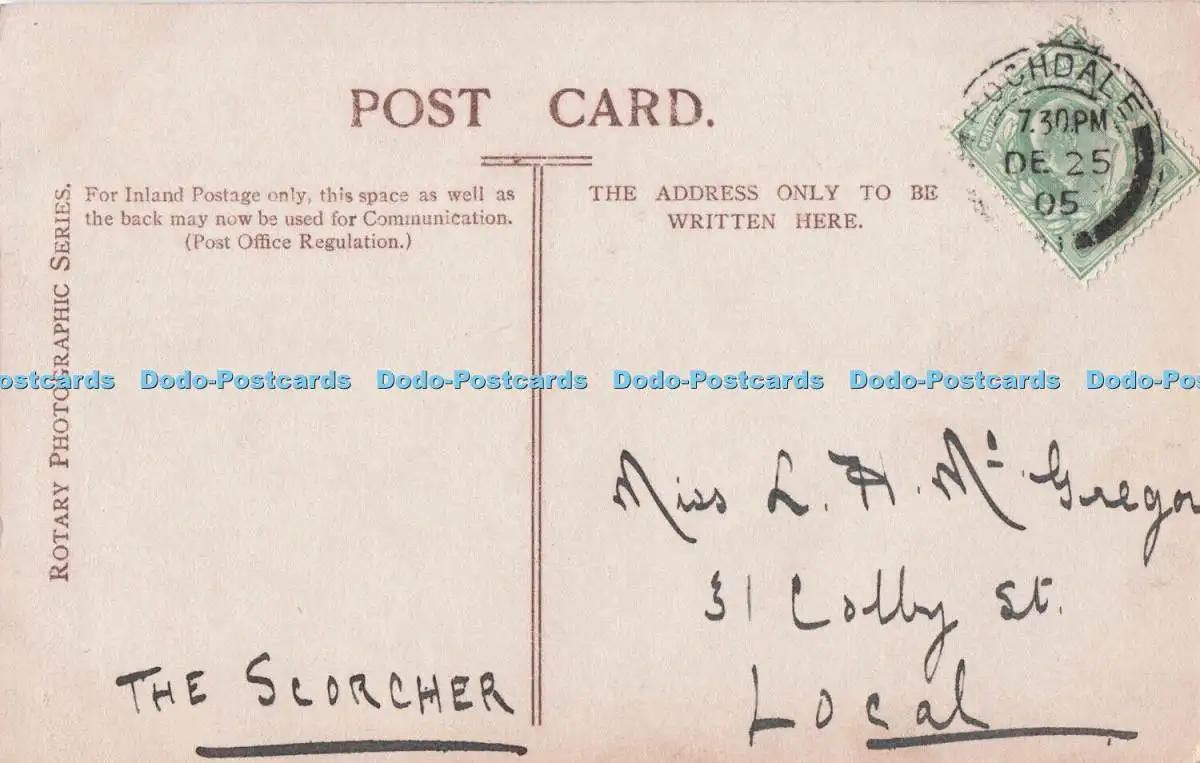 POST CARD.
ROTARY PHOTOGRAPHIC SERIES.
For Inland Postage only, this space as well as
the back may now be used for Communication.
(Post Office Regulation.)
THE ADDRESS ONLY TO BE
WRITTEN HERE.
ROCHDALE
7.30.PM
DE 25
05
ostcards Dodo-Postcards Dodo-Postcards Dodo-Postcards Dodo-Postcards Dodo-Pos
Miss L. H. Mc Gregor
31 Colly St.
Local
THE SCORCHER